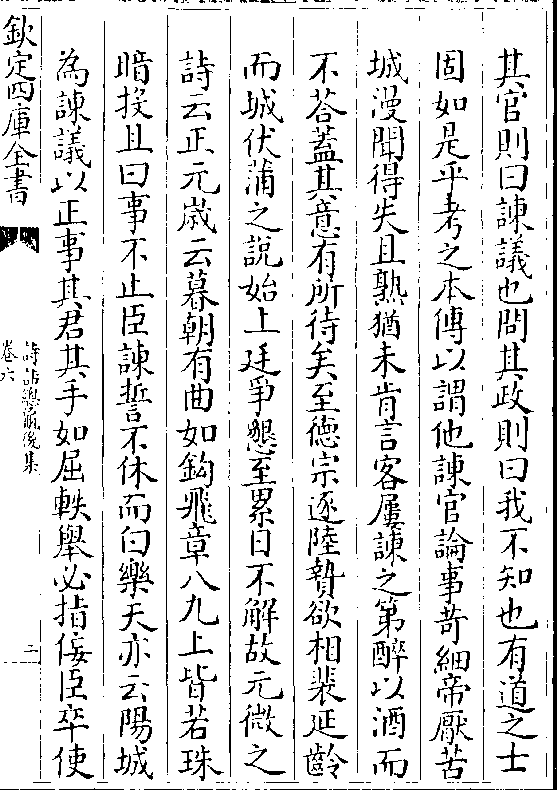 其官則曰諫議也問其政則曰我不知也有道之士
固如是乎考之本傳以謂他諫官論事苛細帝厭苦
城漫聞得失且熟猶未肯言客屢諫之第醉以酒而
不荅蓋其意有所待矣至德宗逐陸贄欲相裴延齡
而城伏蒲之說始上廷爭懇至累日不解故元微之
詩云正元嵗云暮朝有曲如鈎飛章八九上皆若珠
暗投且曰事不止臣諫誓不休而白樂天亦云陽城
為諫議以正事其君其手如屈軼舉必指佞臣卒使
欽定四庫全書
詩話總龜後集
卷六
三